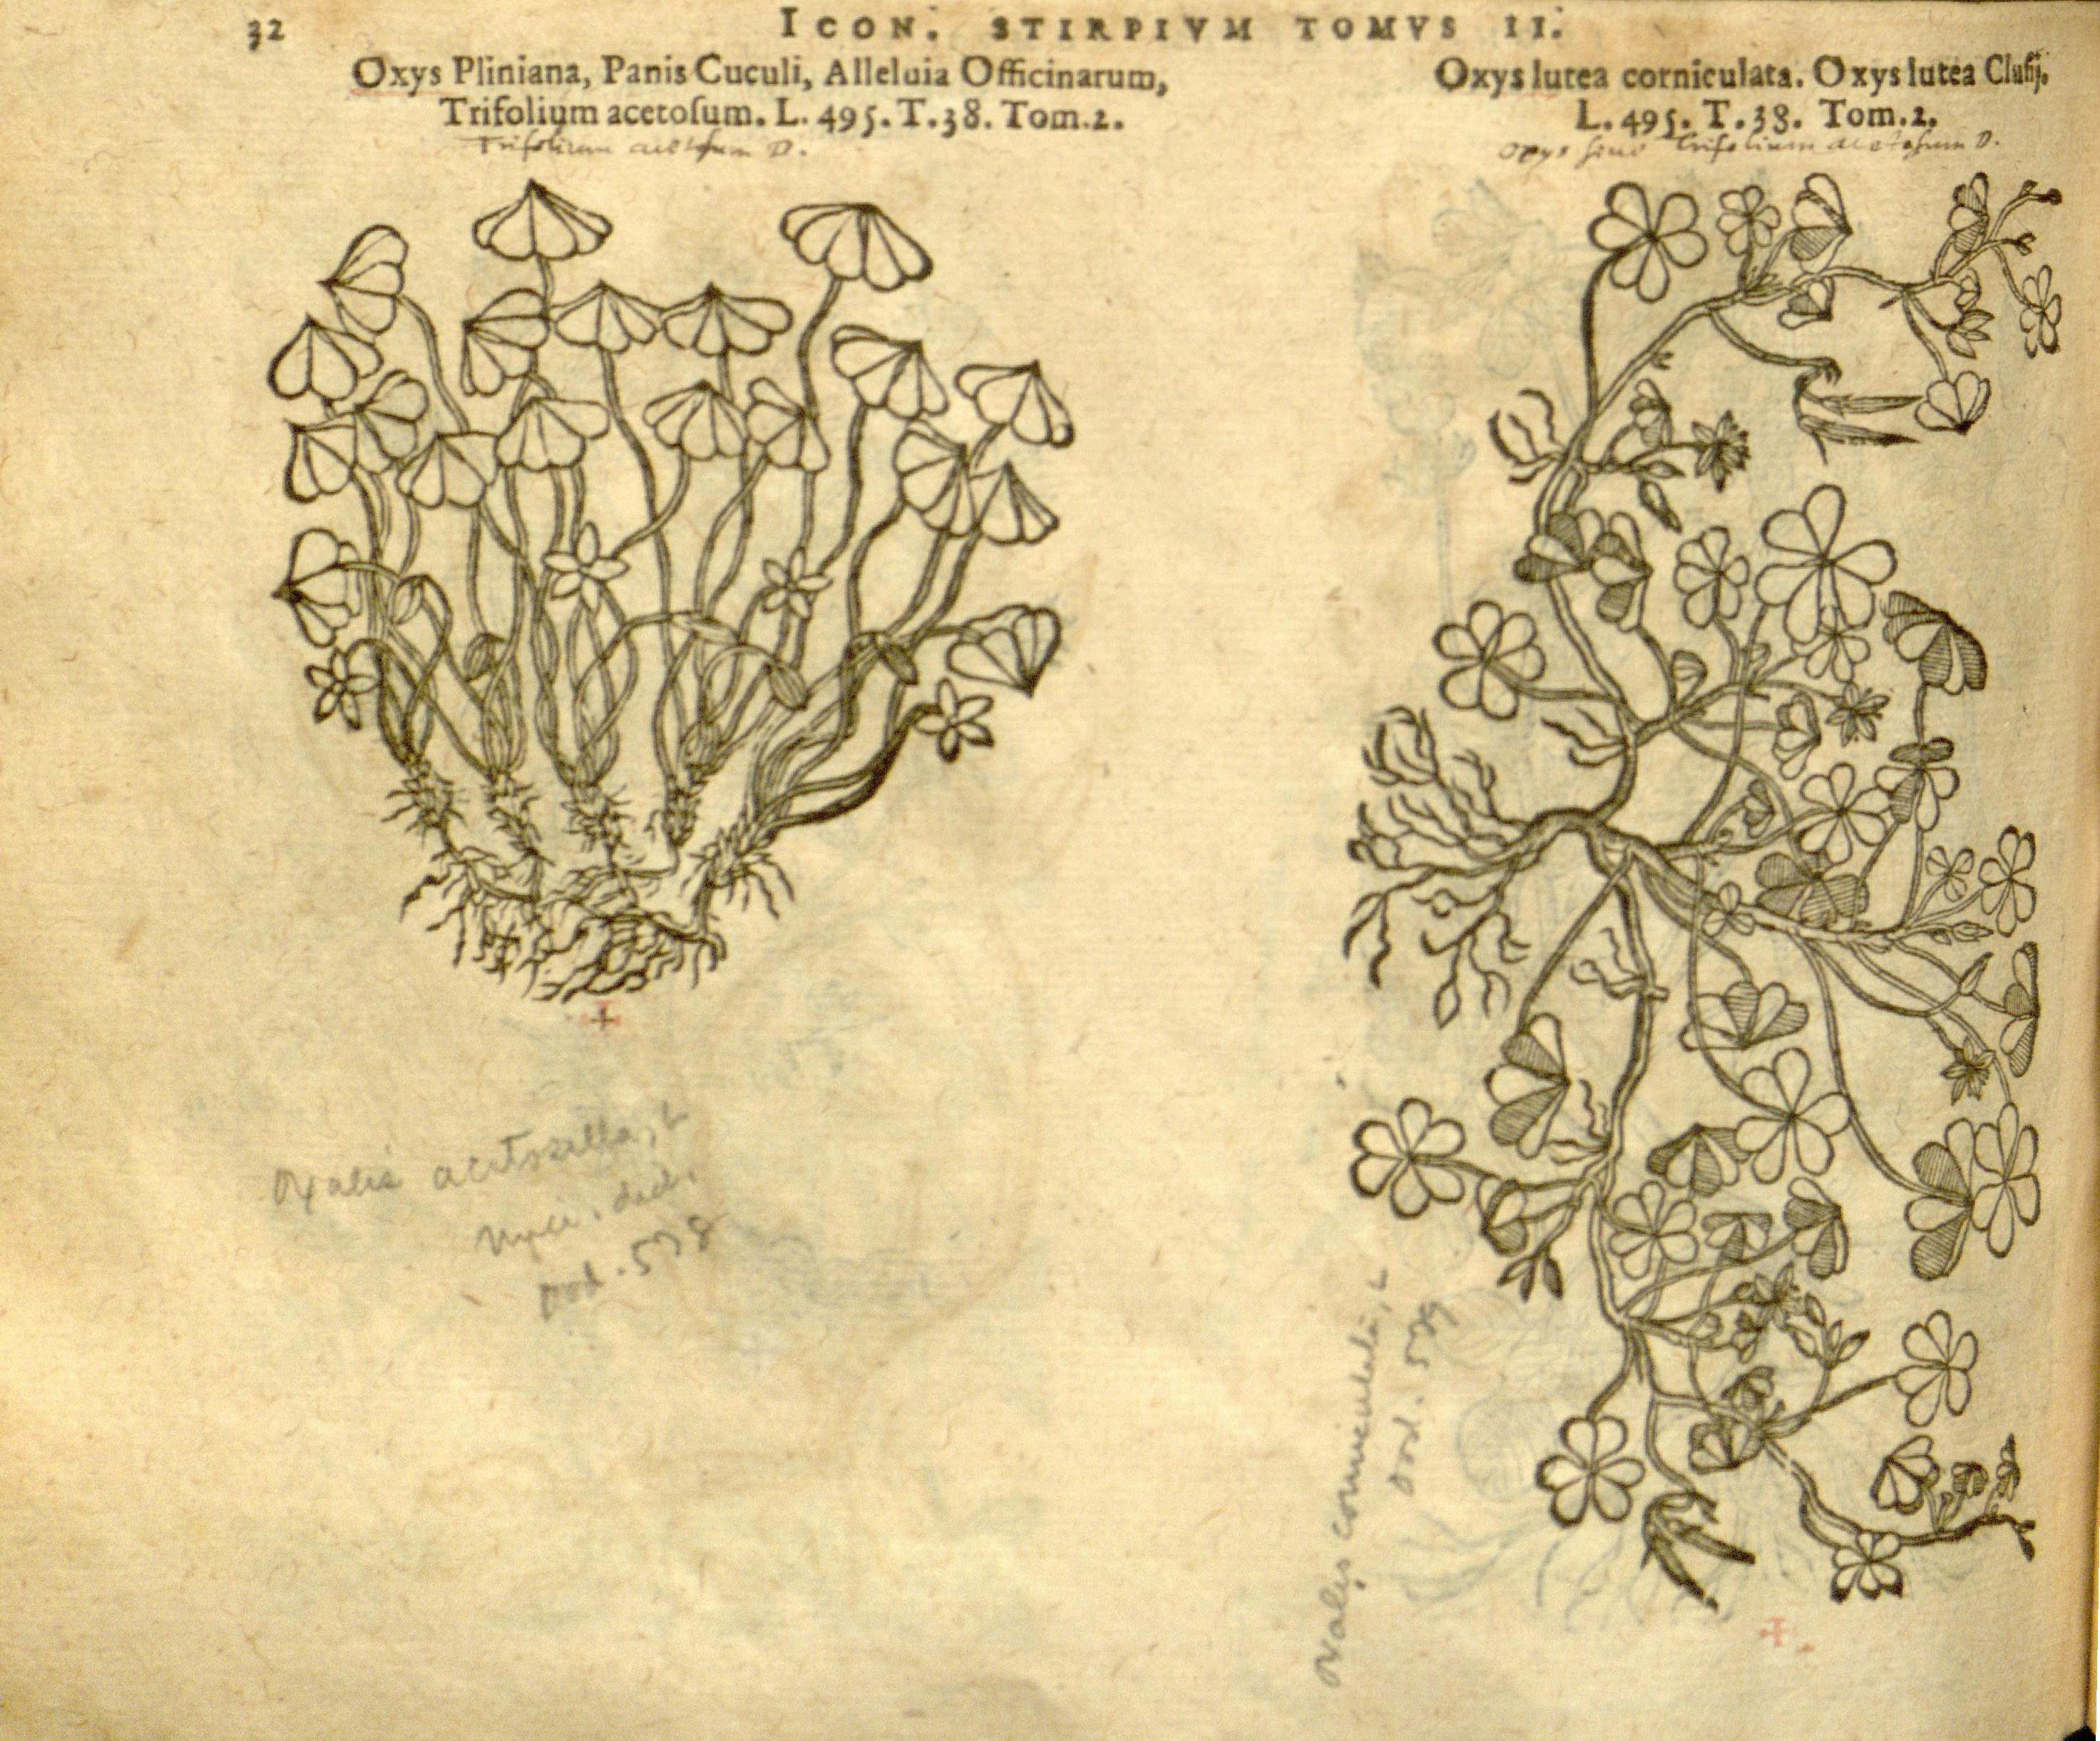 32
ICON. STIRPIVM TOMVS II.
Oxys Pliniana, Panis Cuculi, Alleluia Officinarum,
Trifolium acetoſum. L. 495. T. 38. Tom. 2.
Trifolium acetosum D.
Oxys lutea corniculata. Oxys lutea Cluſij.
L. 495. T. 38. Tom. 2.
oxys sive Trifolium acetosum D.
Oxalis acetosella, L
dod. 578
Oxalis corniculata, L
dod. 579